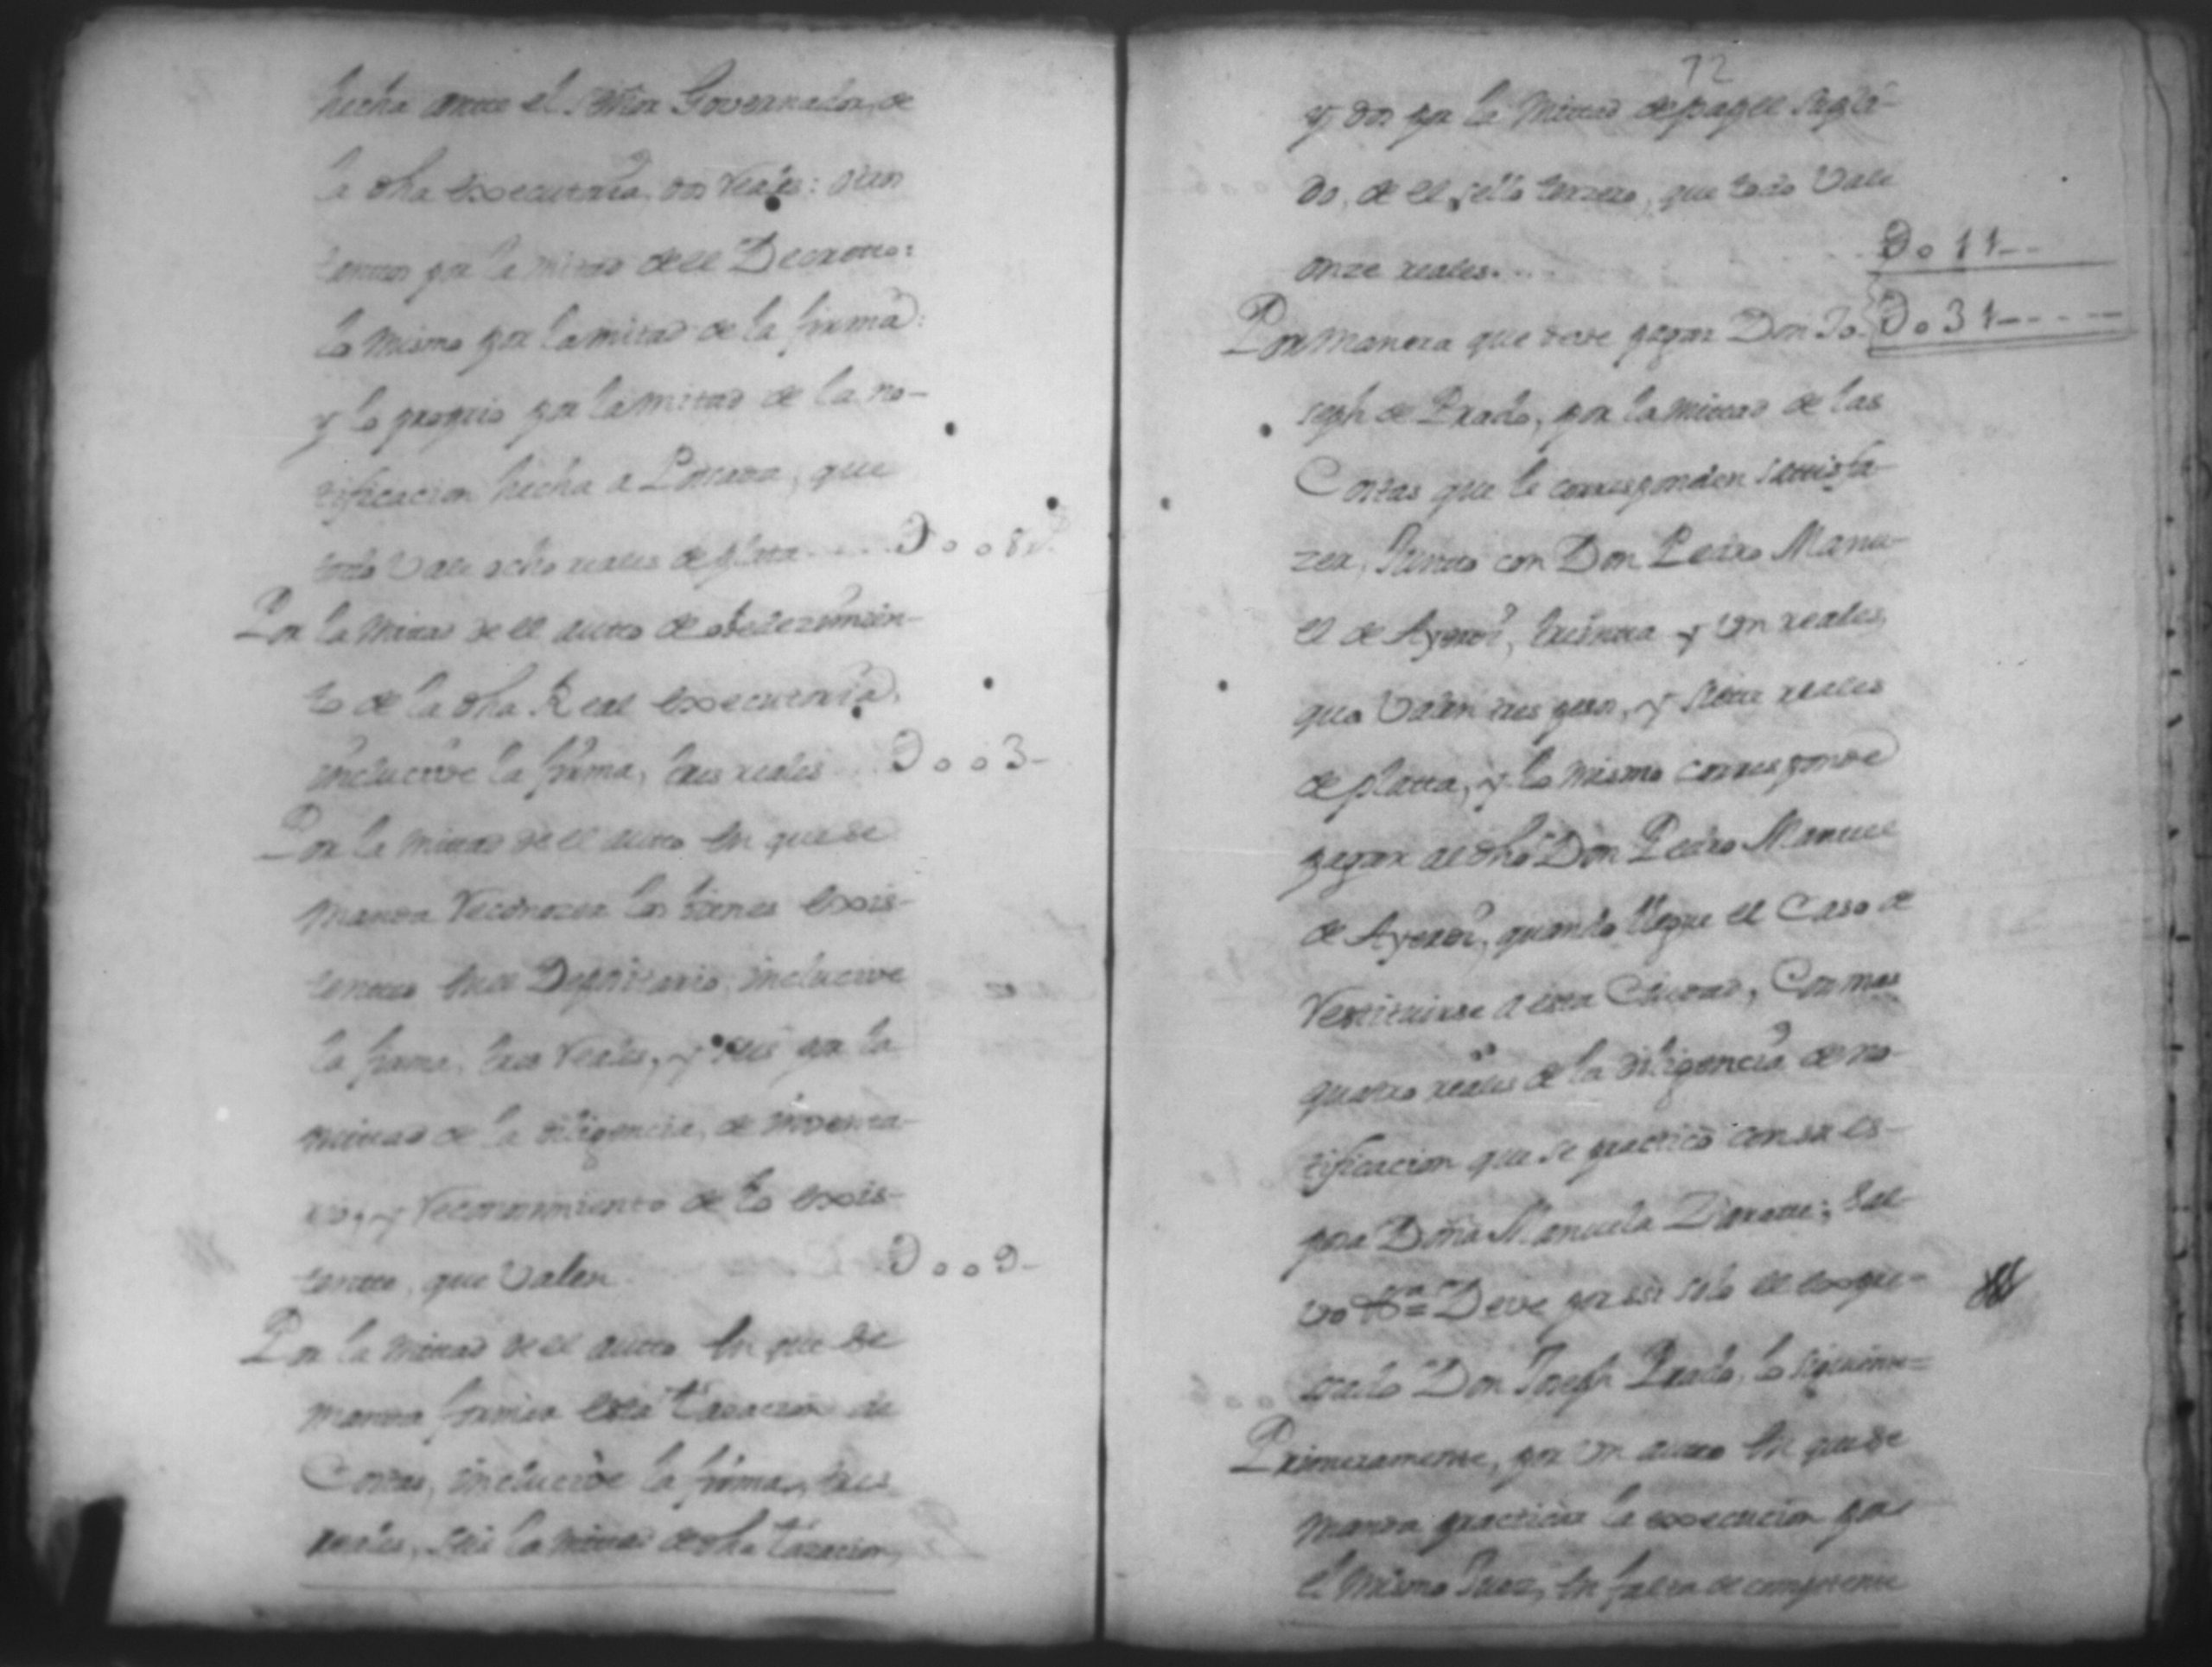 hecha antte el Señor Governador, de
la dha executoria, dos reales:
tanttos por la mitad de el Decretto:
lo mismo por la mitad de la firma:
y lo proprio por la mittad de la no-
tificacion hecha a que
todo vale ocho reales de platta ..... D o o 8
Por la Mittad de el autto de obedezimien-
to de la dha Real executoria,
inclucive la firma, tres reales ... D o o 3 -
Por la mittad de el autto en que se
manda reconozer los bienes exis-
tenttes en el Depositario, inclucive
la firma, tres reales, y seis por la
mittad de la diligencia, de inventa-
rio, y reconocimiento de lo exis-
tentte, que valen D o o 9 -
Por la mittad de el autto en que se
manda formar esta tasacion de
Costas, inclucive la firma, tres
reales, seis la mittad de dha tasacion,
72
y dos por la Mittad de papel sella-
do, de el sello terzero, que todo vale
onze reales.... D o 11 --
Por manera que deve pagar Don Jo- D o 31 -----
seph de Prado, por la mittad de las
Costas que le corresponden sattisfa-
zer, Juntto con Don Pedro Manu-
el de Ayerdi, treintta y un reales,
que valen tres pesos, y siette reales
de platta, y lo mismo corresponde
pagar al dho Don Pedro Manuel
de Ayerdi, quando llegue el Caso de
restituirse a esta Ciudad, Con mas
quatro reales de la diligencia de no-
tificacion que se practicò con su es-
posa Doña Manuela Sal-
vo = Deve por si solo el expre-
sado Don Joseph Prado, lo siguiente =
Primeramente, por un autto en que se
manda practicar la execucion por
el mismo Juez, en falta de competente